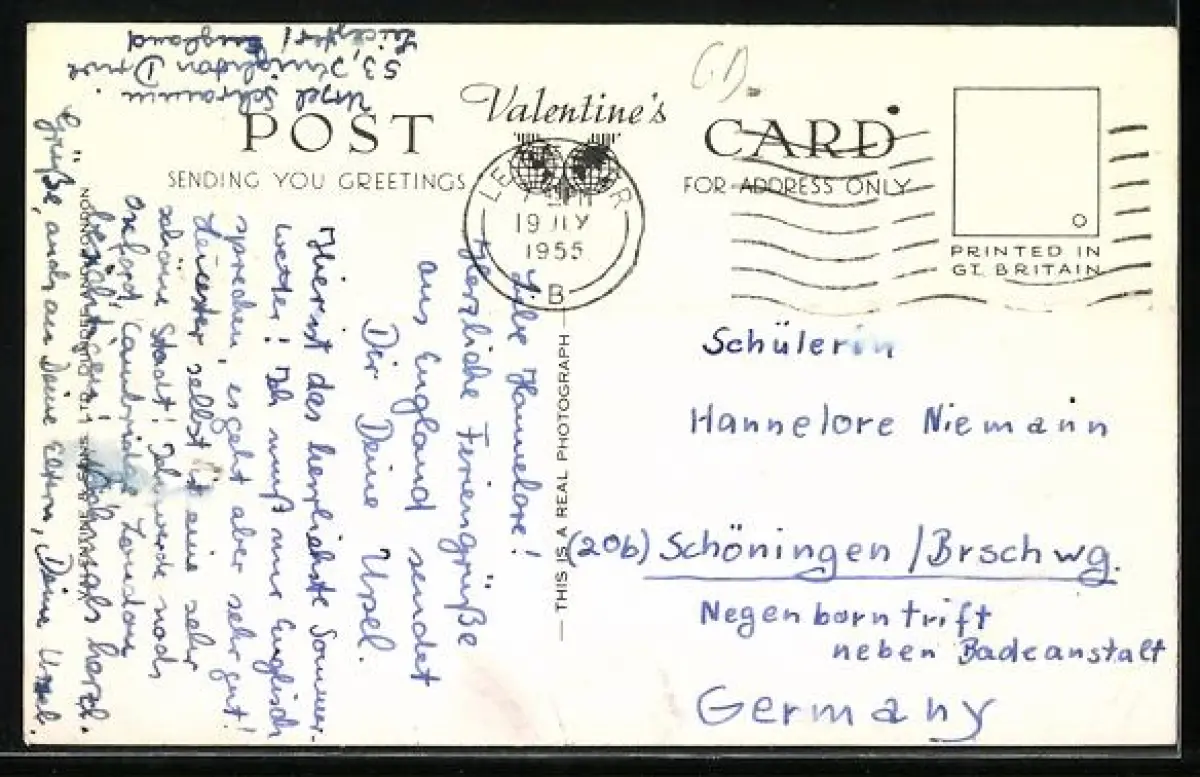 Ursel Schramm.
53, Knighton Drive
Leicester / England
Valentine's
POST CARD
SENDING YOU GREETINGS
FOR ADDRESS ONLY
7 PM
19 JLY
1955
B
PRINTED IN
GT. BRITAIN
Liebe Hannelore!
Herzliche Feriengrüße
aus England sendet
Dir Deine Ursel.
Hier ist das herrlichste Sommer-
wetter! Ich muß nur Englisch
sprechen, es geht aber sehr gut!
Leicester selbst ist eine sehr
schöne Stadt! Ich werde noch
Oxford, Cambridge, London
besichtigen! Nochmals herzl.
Grüße, auch an Deine Eltern, Deine Ursel.
VALENTINE & SONS, LTD., DUNDEE AND LONDON
— THIS IS A REAL PHOTOGRAPH —
Schülerin
Hannelore Niemann
(20b) Schöningen / Brschwg.
Negenborntrift
neben Badeanstalt
Germany